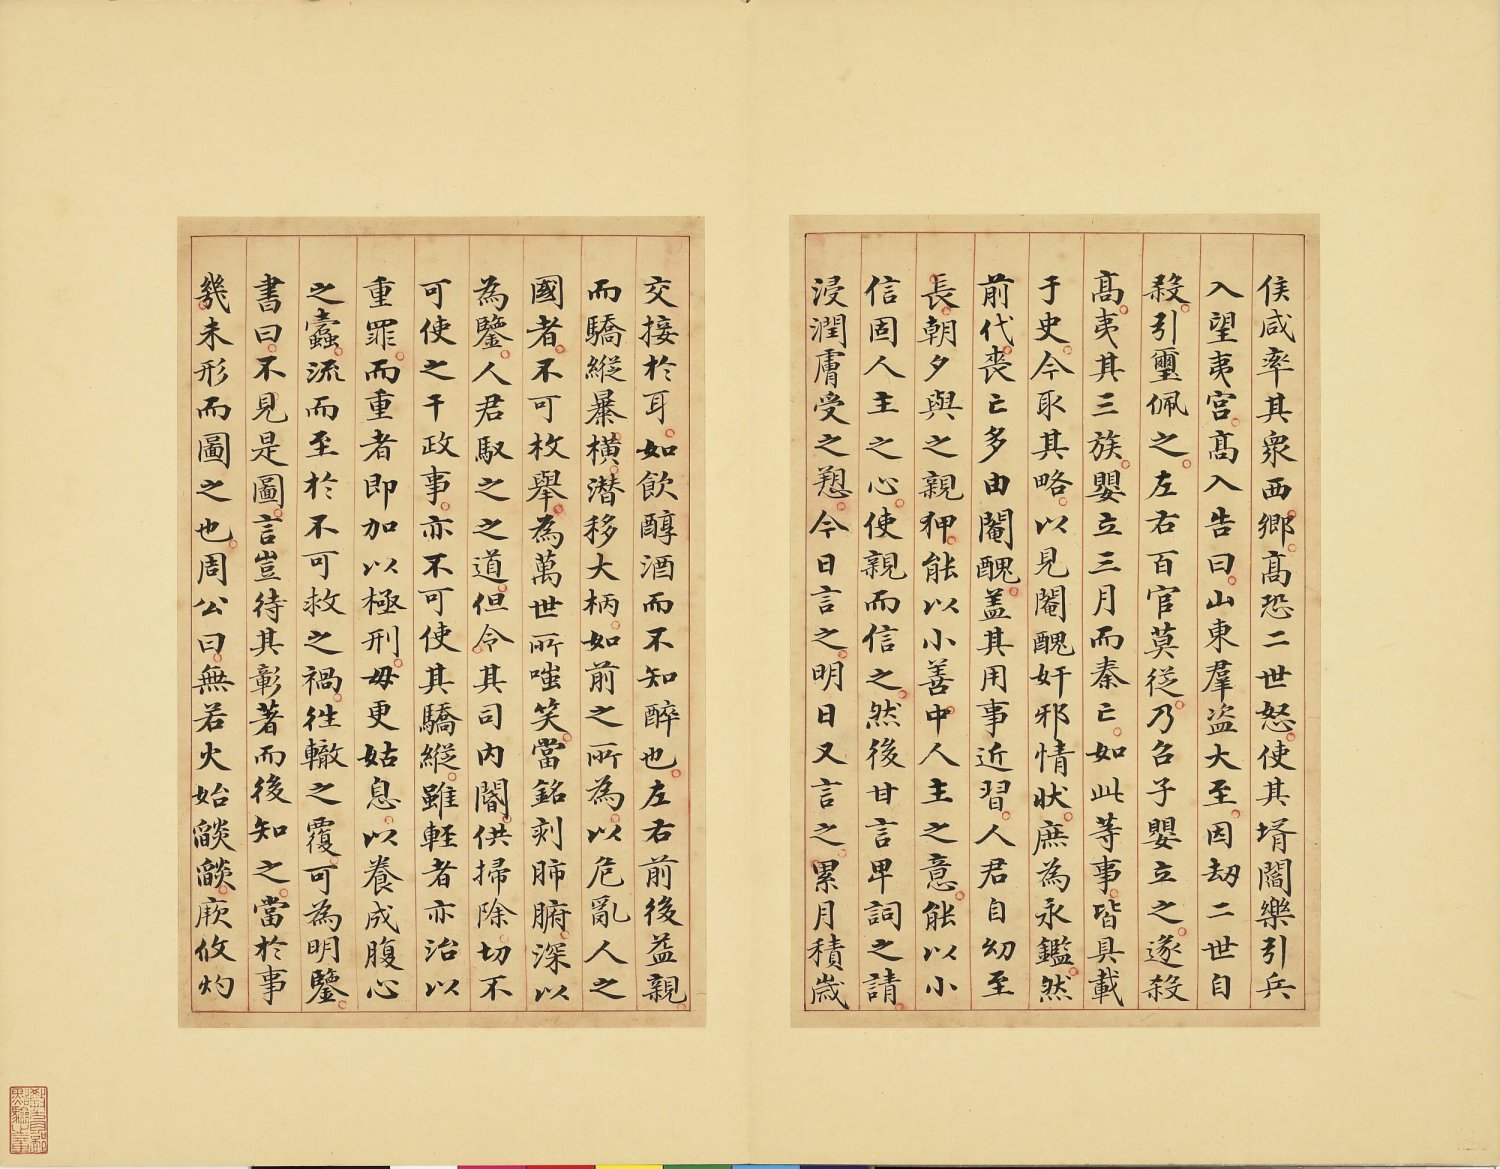 侯咸率其衆西鄉高恐二世怒使其壻閻樂引兵
入望夷宮高入告曰山東羣盜大至因劫二世自
殺引璽佩之左右百官莫從乃召子嬰立之遂殺
高夷其三族嬰立三月而秦亡如此等事皆具載
于史今取其略以見閹醜奸邪情狀庶為永鑑然
前代喪亡多由閹醜盖其用事近習人君自幼至
長朝夕與之親狎能以小善中人主之意能以小
信固人主之心使親而信之然後甘言卑詞之請
浸潤膚受之愬今日言之明日又言之累月積歲
交接於耳如飲醇酒而不知醉也左右前後益親
而驕縱暴橫潜移大柄如前之所為以危亂人之
國者不可枚舉為萬世所嗤笑當銘刻肺腑深以
為鑒人君馭之之道但令其司內閽供掃除切不
可使之干政事亦不可使其驕縱雖輕者亦治以
重罪而重者即加以極刑毋更姑息以養成腹心
之蠹流而至於不可救之禍徃轍之覆可為明鑒
書曰不見是圖言豈待其彰著而後知之當於事
幾未形而圖之也周公曰無若火始燄燄厥攸灼